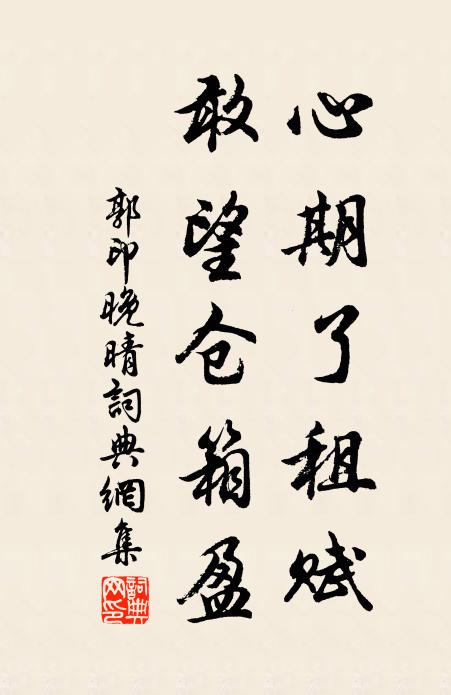 心期了租赋
敢望仓箱盈
郭印晚晴詞典網集
詞典网印